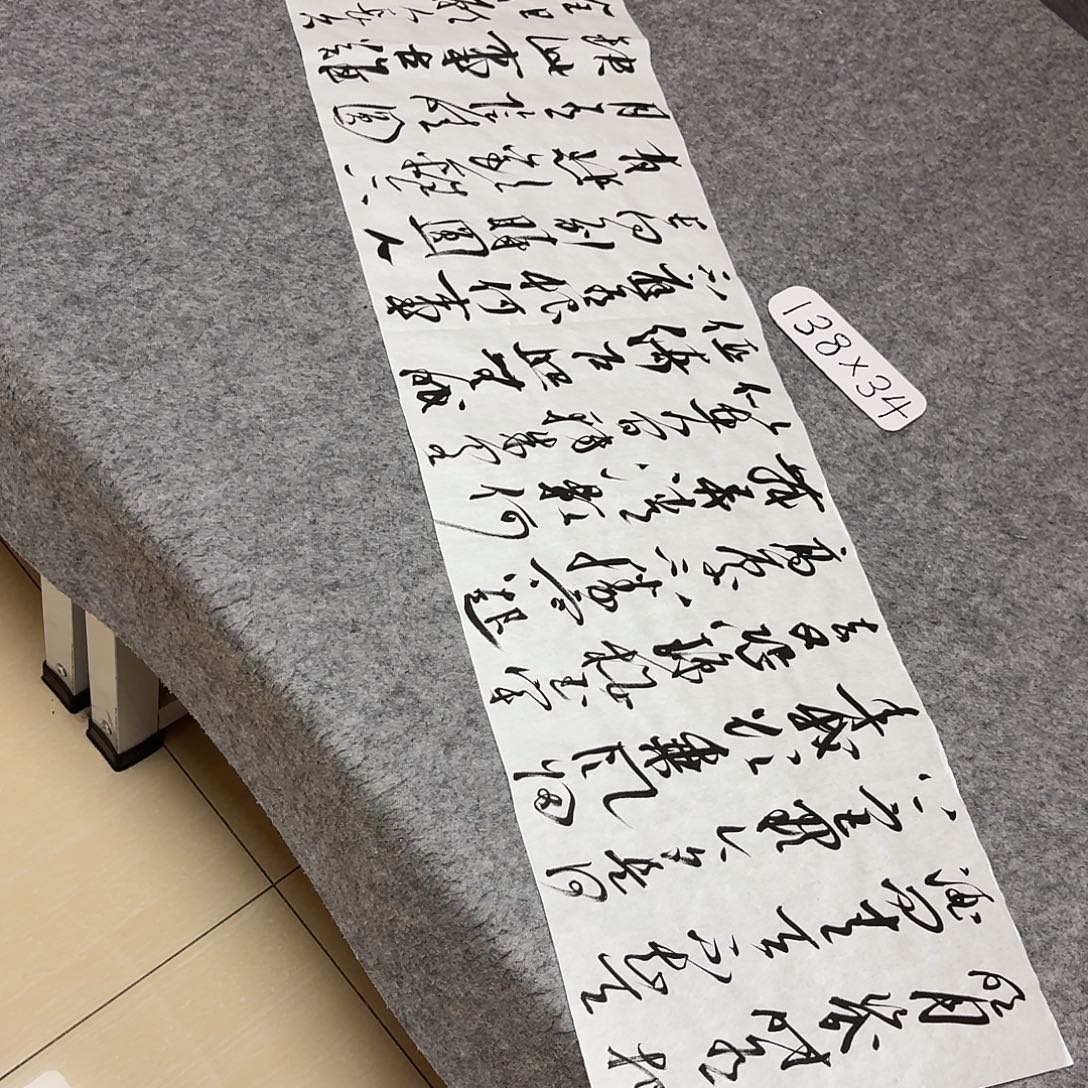 明月幾時有把
酒問青天不知天
上宮闕今夕是何
年我欲乘風歸
去又恐瓊樓玉宇
高處不勝寒起
舞弄清影何
似在人間轉朱閣
低綺戶照無眠
不應有恨何事
長向別時圓人
有悲歡離合
月有陰晴圓
缺此事古難
138×34